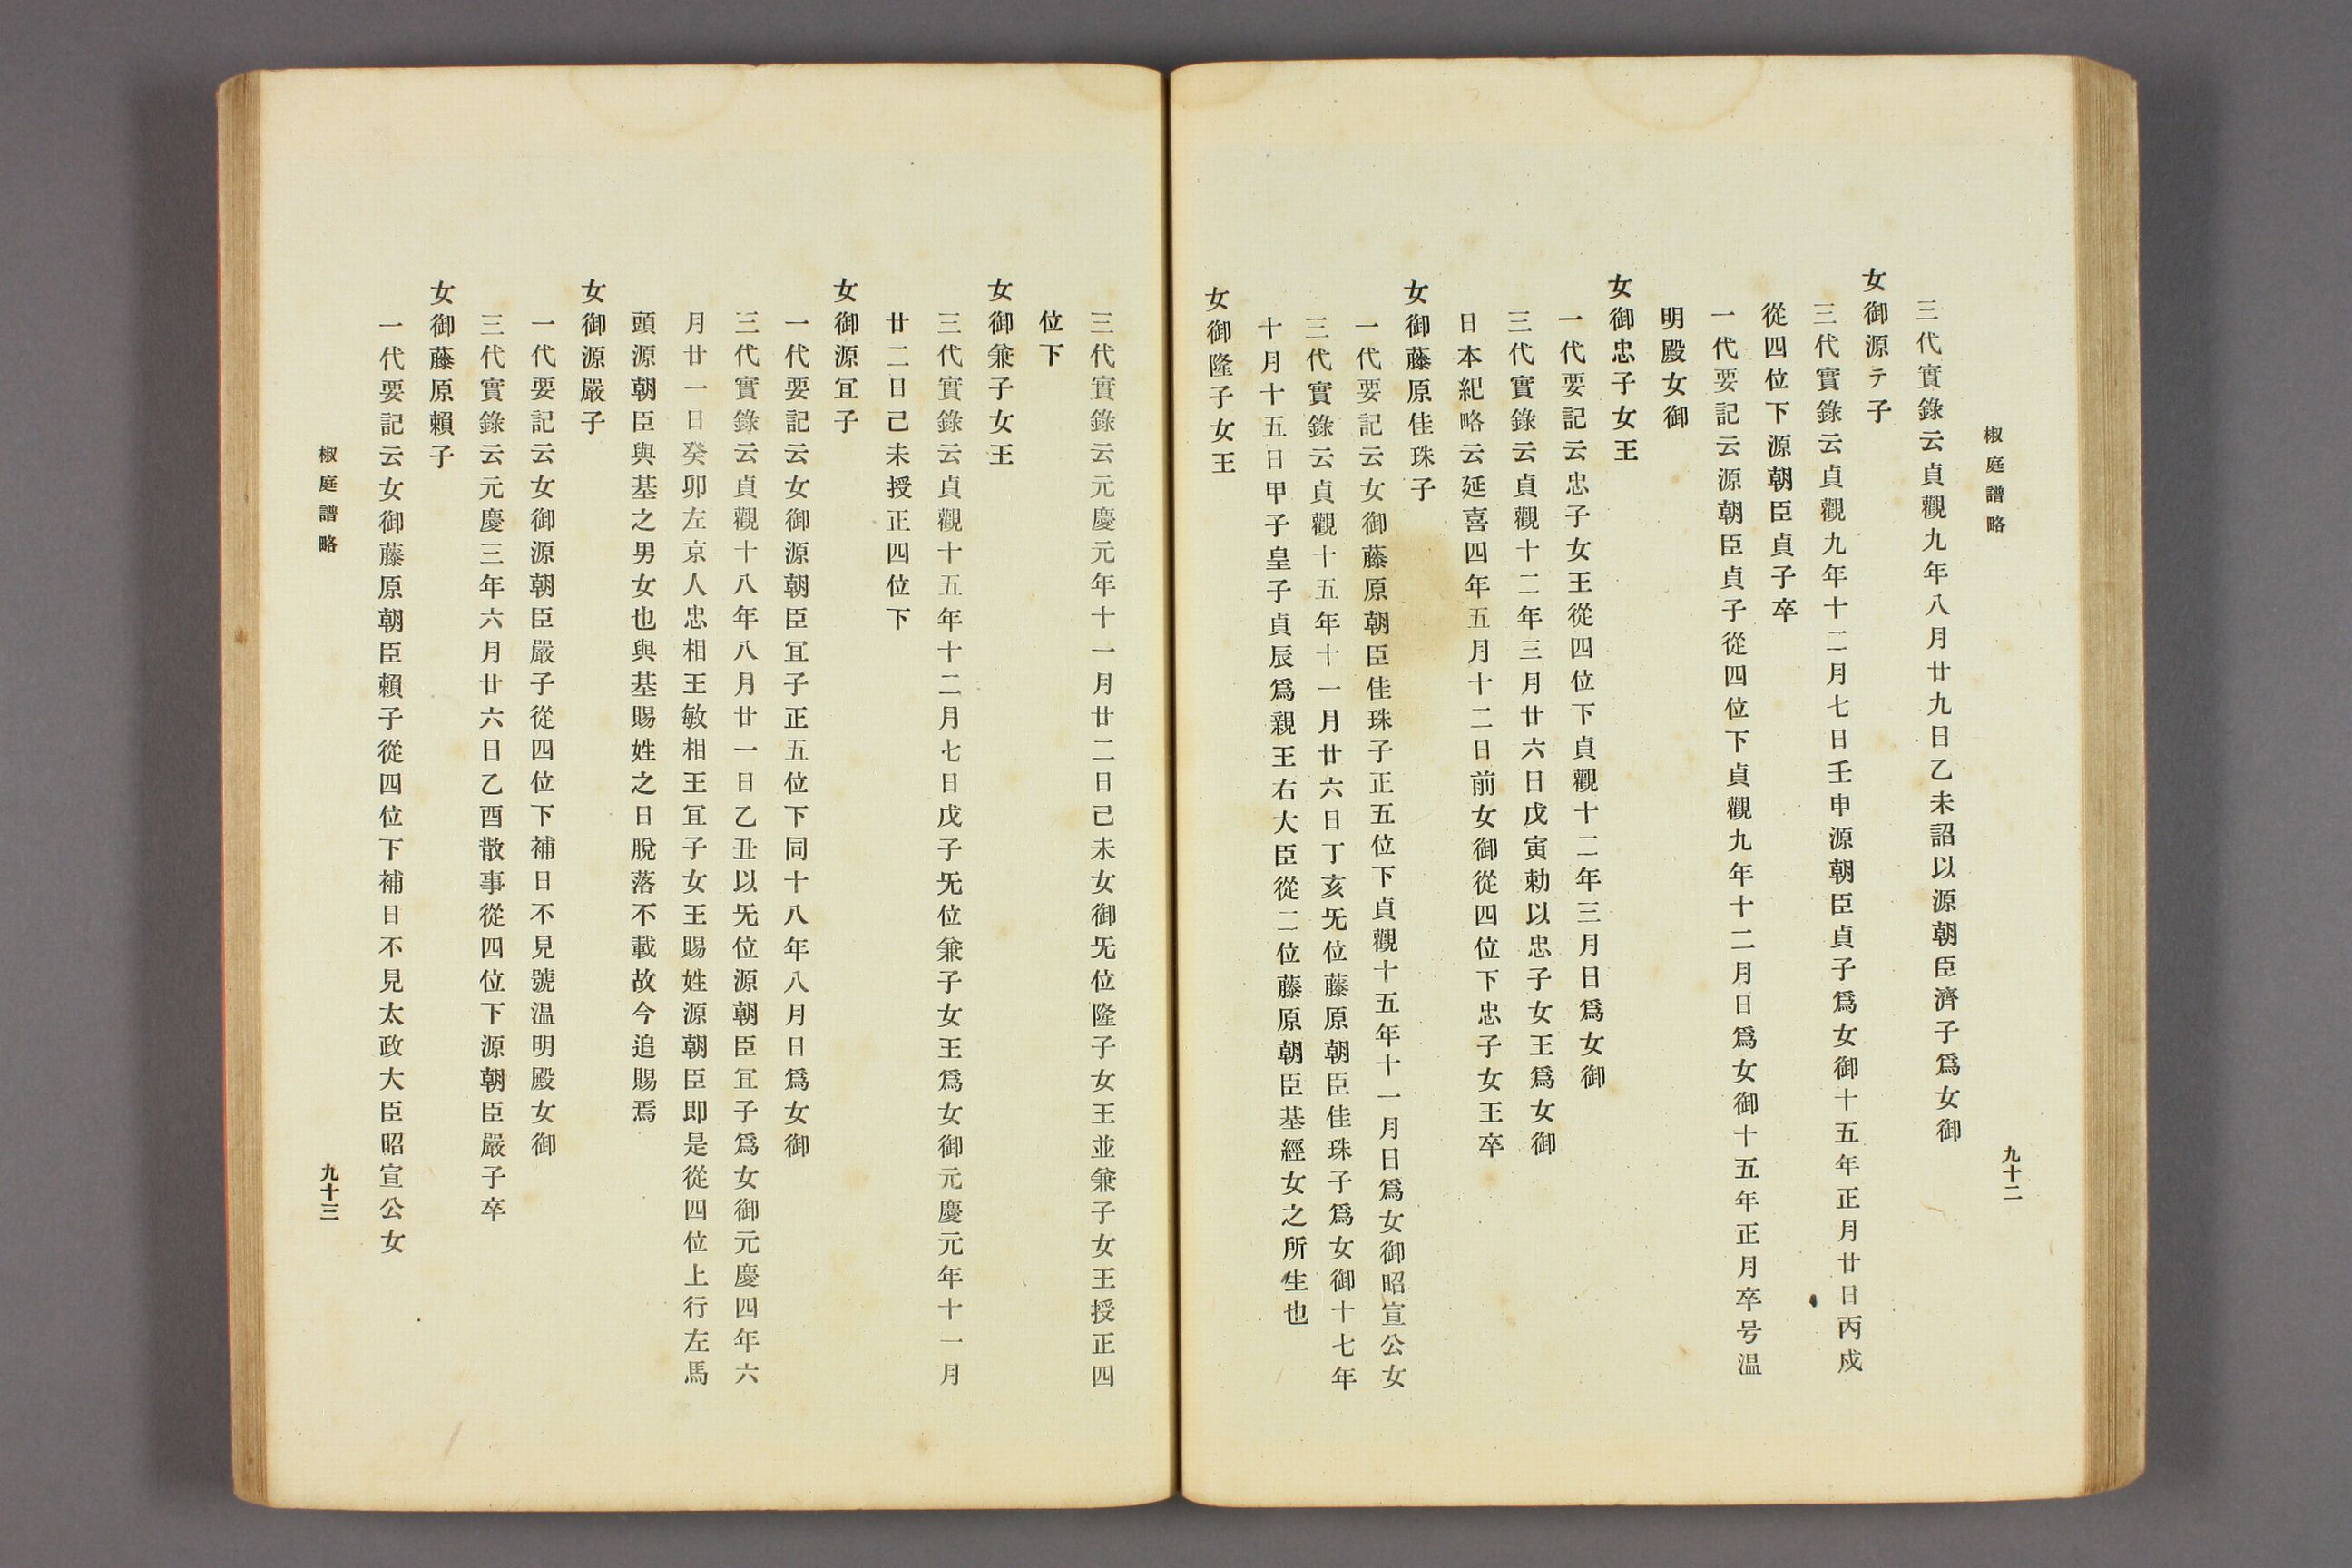 椒庭譜略
九十二
三代實錄云貞觀九年八月廿九日乙未詔以源朝臣濟子爲女御
女御源テ子
三代實錄云貞觀九年十二月七日壬申源朝臣貞子爲女御十五年正月廿日丙戍
從四位下源朝臣貞子卒
一代要記云源朝臣貞子從四位下貞觀九年十二月日爲女御十五年正月卒号温
明殿女御
女御忠子女王
一代要記云忠子女王從四位下貞觀十二年三月日爲女御
三代實錄云貞觀十二年三月廿六日戊寅勅以忠子女王爲女御
日本紀略云延喜四年五月十二日前女御從四位下忠子女王卒
女御藤原佳珠子
一代要記云女御藤原朝臣佳珠子正五位下貞觀十五年十一月日爲女御昭宣公女
三代實錄云貞觀十五年十一月廿六日丁亥旡位藤原朝臣佳珠子爲女御十七年
十月十五日甲子皇子貞辰爲親王右大臣從二位藤原朝臣基經女之所生也
女御隆子女王
三代實錄云元慶元年十一月廿二日己未女御旡位隆子女王並兼子女王授正四
位下
女御兼子女王
三代實錄云貞觀十五年十二月七日戊子旡位兼子女王爲女御元慶元年十一月
廿二日己未授正四位下
女御源冝子
一代要記云女御源朝臣冝子正五位下同十八年八月日爲女御
三代實錄云貞觀十八年八月廿一日乙丑以旡位源朝臣冝子爲女御元慶四年六
月廿一日癸卯左京人忠相王敏相王冝子女王賜姓源朝臣即是從四位上行左馬
頭源朝臣與基之男女也與基賜姓之日脫落不載故今追賜焉
女御源嚴子
一代要記云女御源朝臣嚴子從四位下補日不見號温明殿女御
三代實錄云元慶三年六月廿六日乙酉散事從四位下源朝臣嚴子卒
女御藤原賴子
一代要記云女御藤原朝臣賴子從四位下補日不見太政大臣昭宣公女
椒庭譜略
九十三